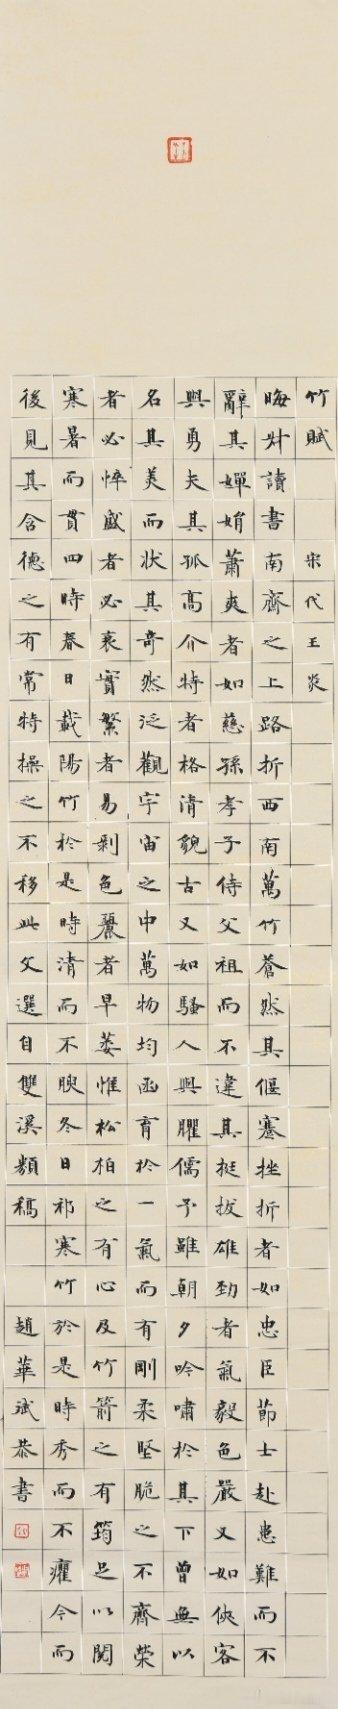 竹賦 宋代王炎
晦叔讀書南齋之上路折西南萬竹蒼然其偃蹇挫折者如忠臣節士赴患難而不
辭其嬋娟蕭爽者如慈孫孝子侍父祖而不違其挺拔雄勁者氣毅色嚴又如俠客
與勇夫其孤高介特者格清貌古又如騷人與臞儒予雖朝夕吟嘯於其下曾無以
名其美而狀其奇然泛觀宇宙之中萬物均函育於一氣而有剛柔堅脆之不齊榮
者必悴盛者必衰實繁者易剝色麗者早萎惟松柏之有心及竹箭之有筠足以閱
寒暑而貫四時春日載陽竹於是時清而不腴冬日祁寒竹於是時秀而不癯今而
後見其含德之有常特操之不移此文選自雙溪類稿 趙華斌恭書